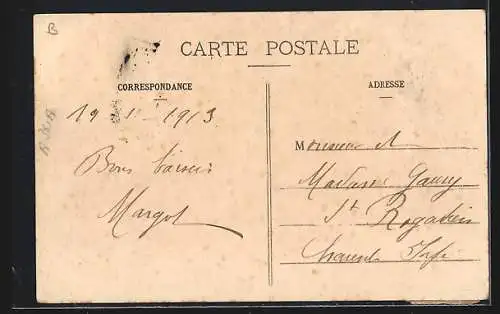 B
CARTE POSTALE
CORRESPONDANCE
ADRESSE
19 1 1913
Bons baisers
Margot
Monsieur et
Madame
St Rogatien
Charente Infre